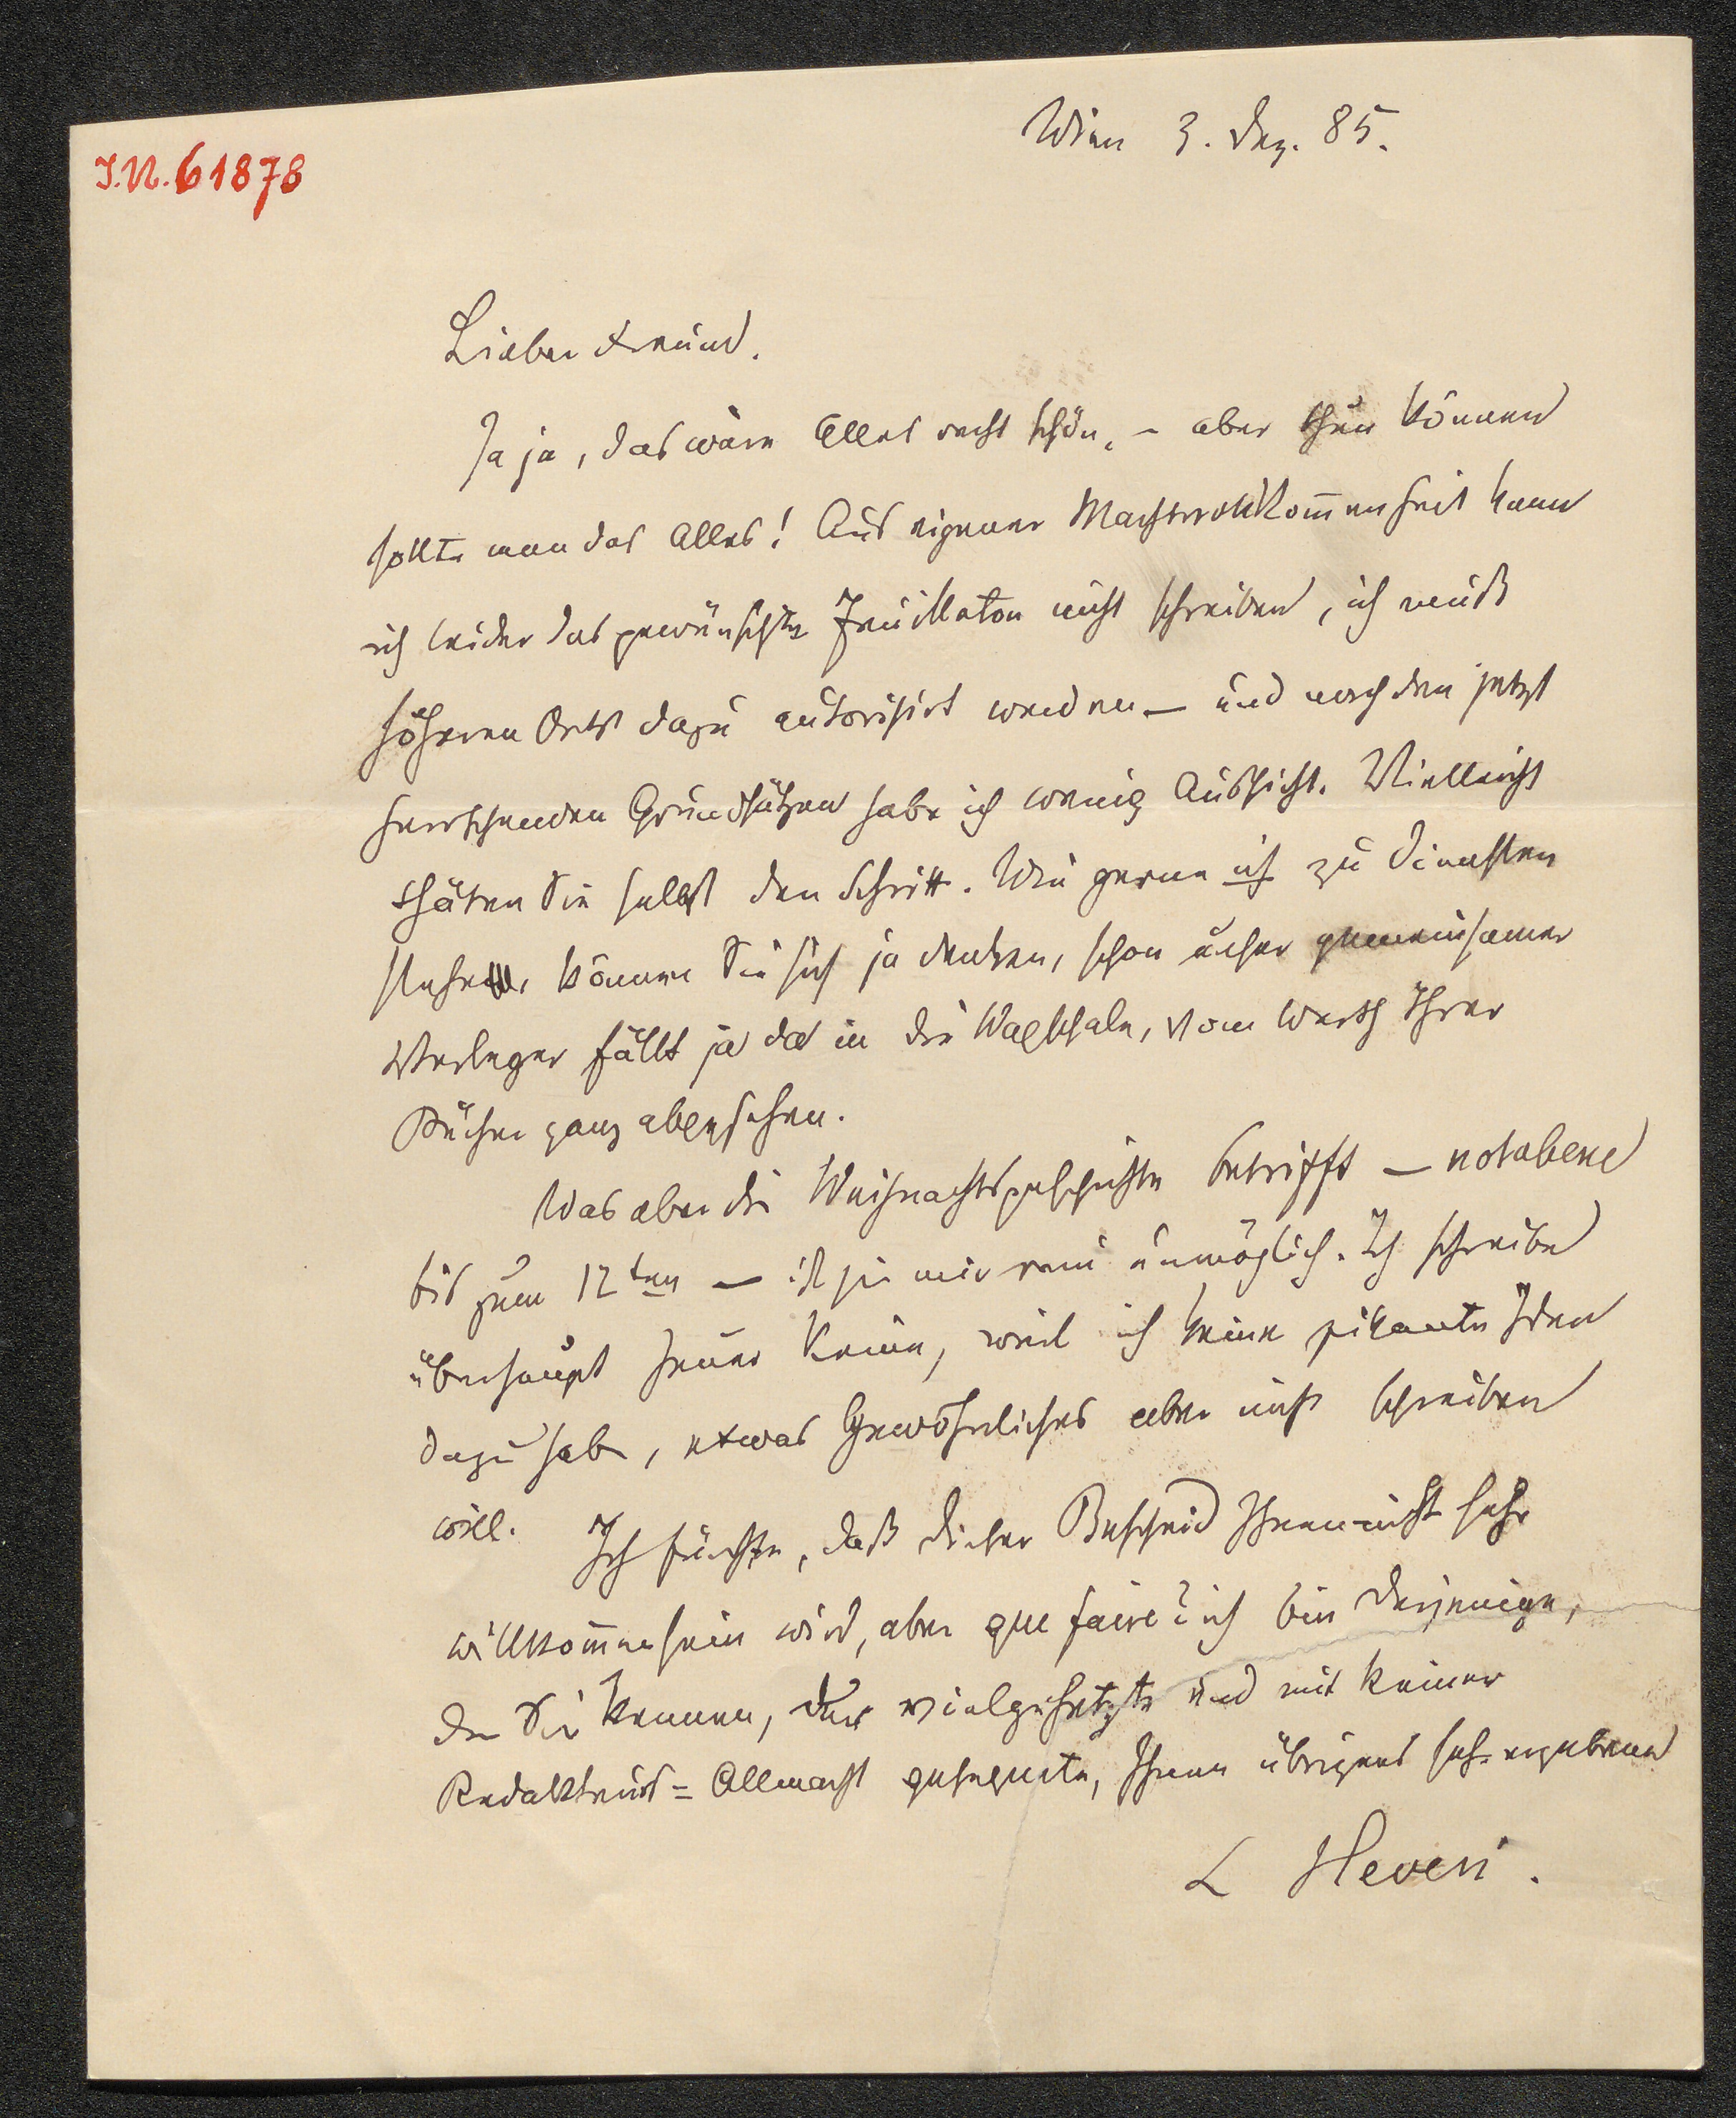 Wien 3. Dez. 85.
I.N. 61878
Lieber Freund.
Ja ja, das wäre Alles recht schön, – aber thun können
sollte man das Alles! Aus eigener Machtvollkom̅enheit kann
ich leider das gewünschte Feuilleton nicht schreiben, ich muß
höheren Orts dazu autorisirt werden – und nach den jetzt
herrschenden Grundsätzen habe ich wenig Aussicht. Vielleicht
thäten Sie selbst den Schritt. Wie gerne ich zu Diensten
stehe, können Sie sich ja denken, schon unser gemeinsamer
Verleger fällt ja da in die Wagschale, vom Werth Ihrer
Bücher ganz abgesehen.
Was aber die Weihnachtsgeschichte betrifft – notabene
bis zum 12ten – ist sie mir rein unmöglich. Ich schreibe
überhaupt heuer keine, weil ich keine pikante Idee
dazu habe, etwas Gewöhnliches aber nicht schreiben
will.
Ich fürchte, daß dieser Bescheid Ihnen nicht sehr
willkom̅en sein wird, aber que faire? ich bin derjenige,
den Sie kennen, der vielgehetzte und mit keiner
Redakteurs-Allmacht gesegnete, Ihnen übrigens sehr ergebene
L Hevesi.